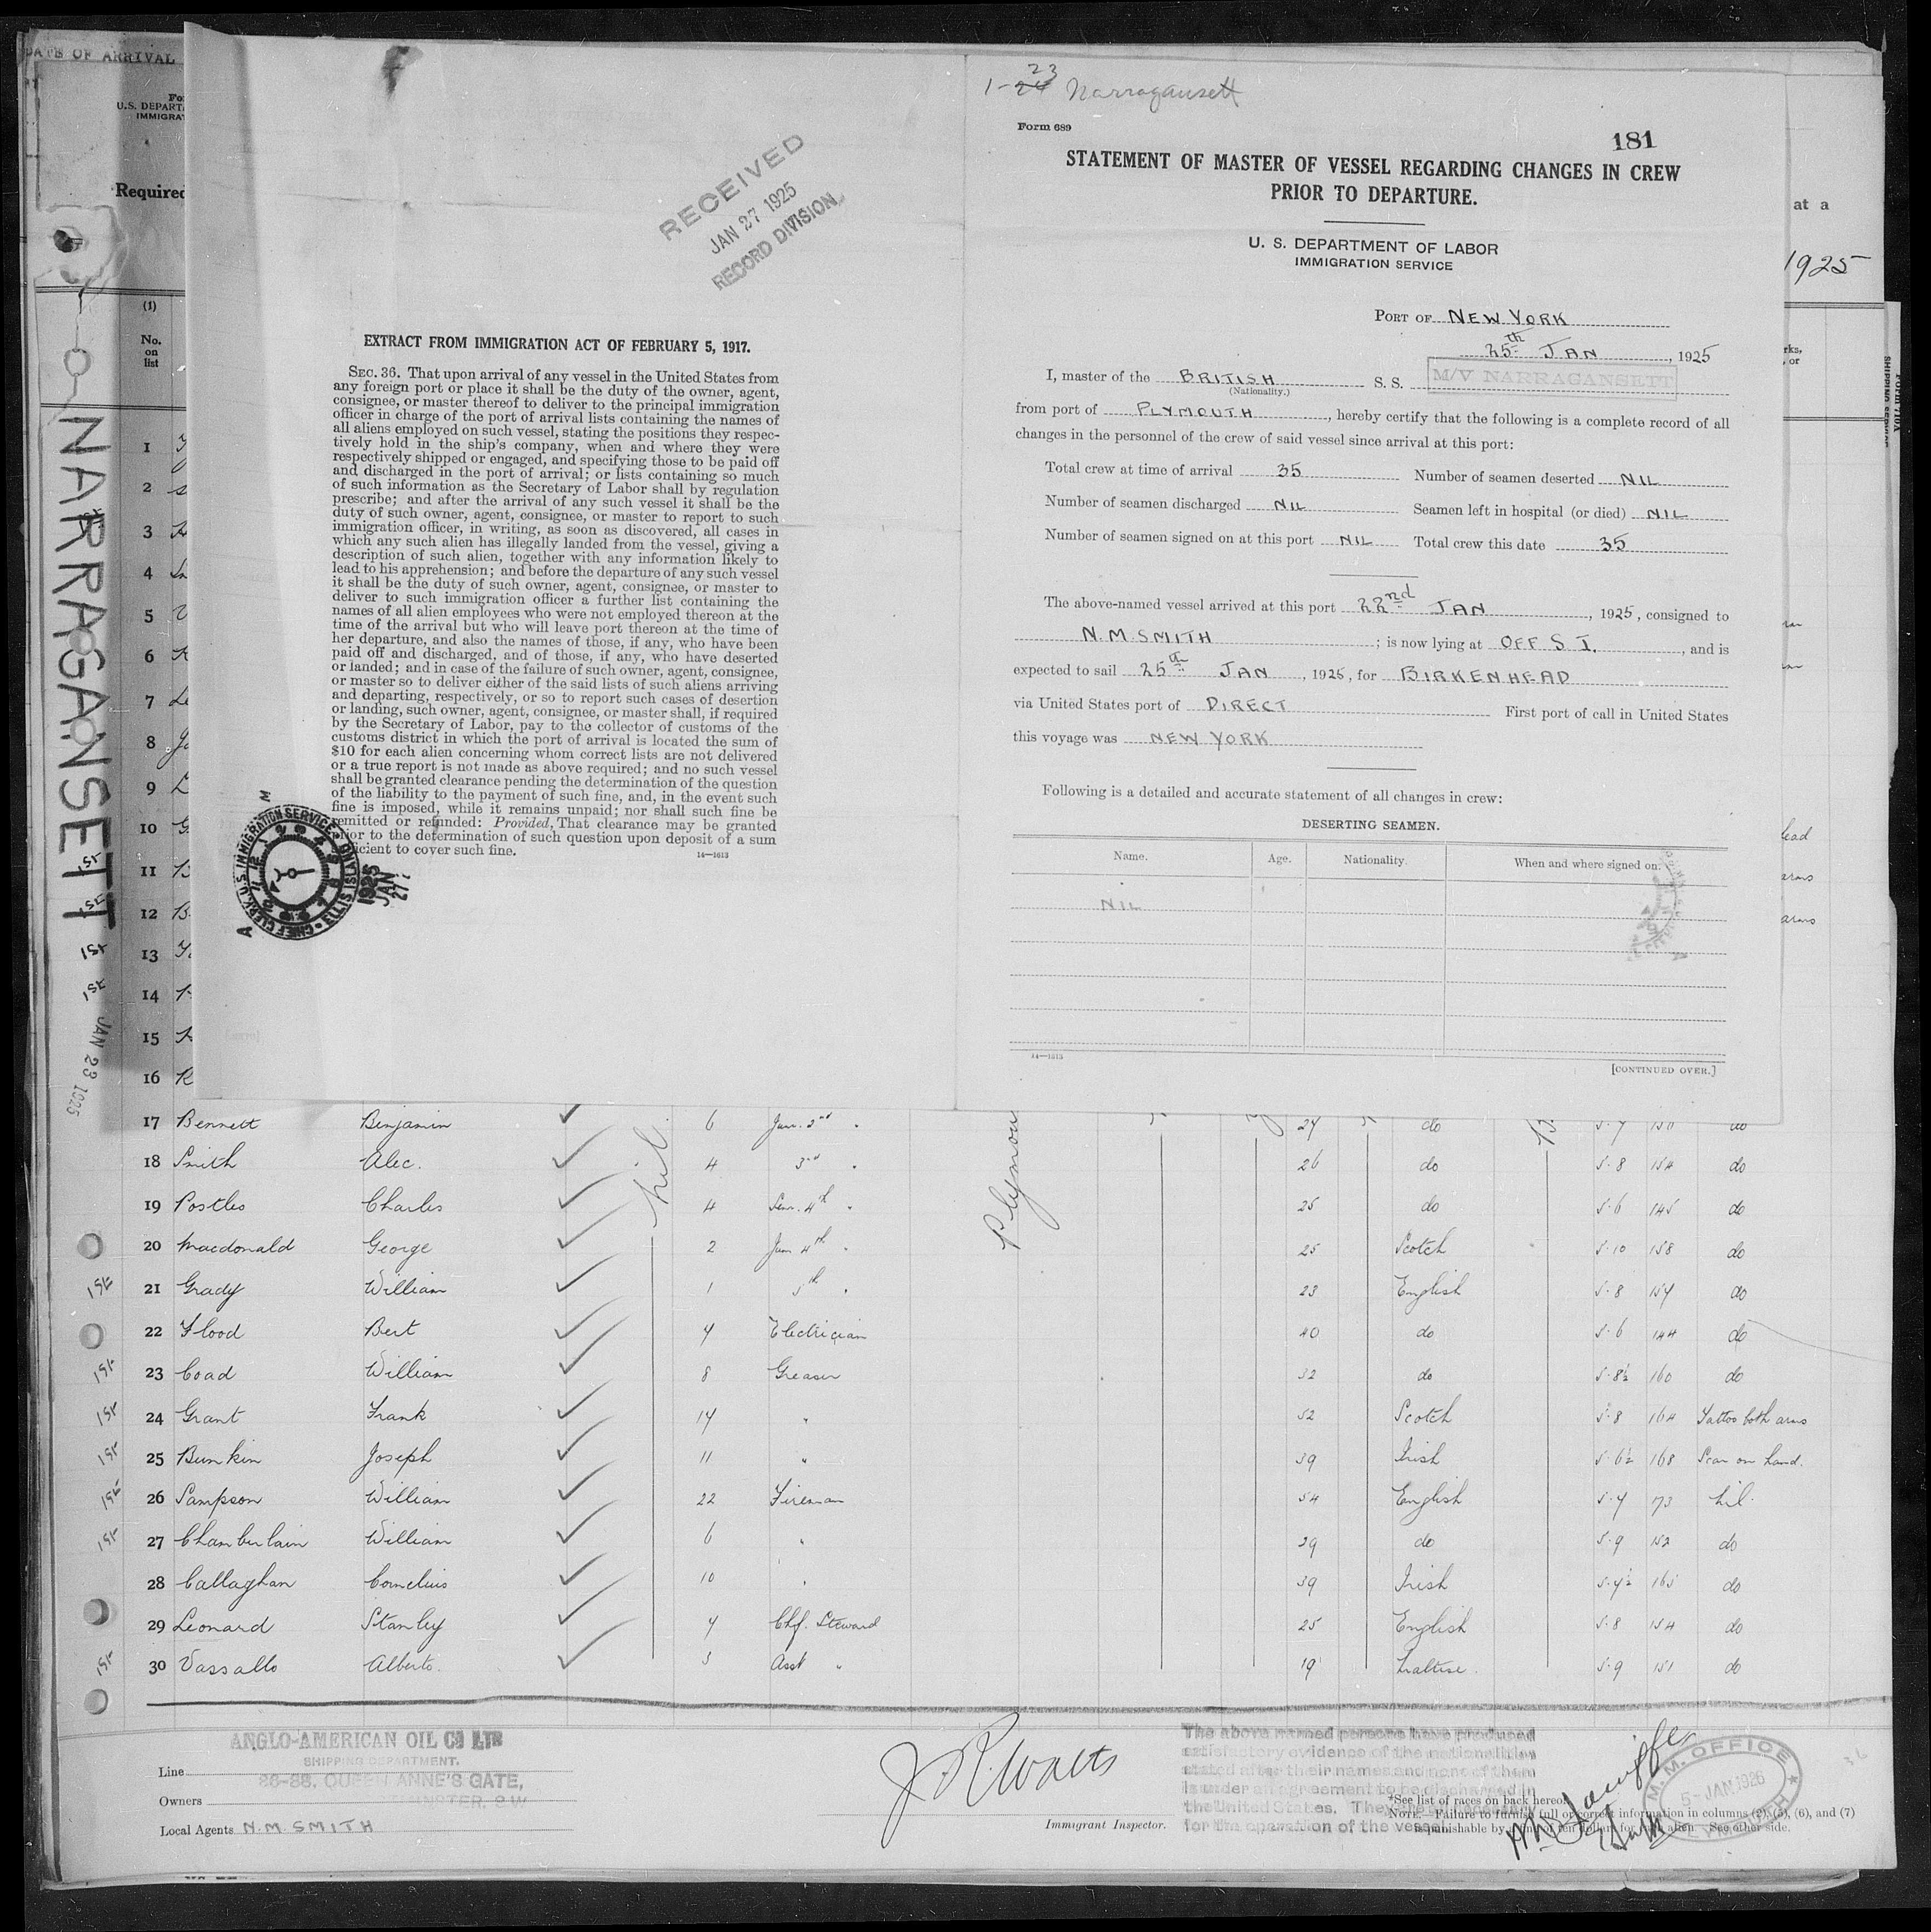 DATE OF ARRIVAL
U.S. DEPART
IMMIGRAT
Required
(1)
No.
on
list
NARRAGANSETT
JAN 23 1925
RECEIVED
JAN 27 1925
RECORD DIVISION
EXTRACT FROM IMMIGRATION ACT OF FEBRUARY 5, 1917.
SEC. 36. That upon arrival of any vessel in the United States from
any foreign port or place it shall be the duty of the owner, agent,
consignee, or master thereof to deliver to the principal immigration
officer in charge of the port of arrival lists containing the names of
all aliens employed on such vessel, stating the positions they respec-
tively hold in the ship's company, when and where they were
respectively shipped or engaged, and specifying those to be paid off
and discharged in the port of arrival; or lists containing so much
of such information as the Secretary of Labor shall by regulation
prescribe; and after the arrival of any such vessel it shall be the
duty of such owner, agent, consignee, or master to report to such
immigration officer, in writing, as soon as discovered, all cases in
which any such alien has illegally landed from the vessel, giving a
description of such alien, together with any information likely to
lead to his apprehension; and before the departure of any such vessel
it shall be the duty of such owner, agent, consignee, or master to
deliver to such immigration officer a further list containing the
names of all alien employees who were not employed thereon at the
time of the arrival but who will leave port thereon at the time of
her departure, and also the names of those, if any, who have been
paid off and discharged, and of those, if any, who have deserted
or landed; and in case of the failure of such owner, agent, consignee,
or master so to deliver either of the said lists of such aliens arriving
and departing, respectively, or so to report such cases of desertion
or landing, such owner, agent, consignee, or master shall, if required
by the Secretary of Labor, pay to the collector of customs of the
customs district in which the port of arrival is located the sum of
$10 for each alien concerning whom correct lists are not delivered
or a true report is not made as above required; and no such vessel
shall be granted clearance pending the determination of the question
of the liability to the payment of such fine, and, in the event such
fine is imposed, while it remains unpaid; nor shall such fine be
remitted or refunded: Provided, That clearance may be granted
prior to the determination of such question upon deposit of a sum
sufficient to cover such fine.
14—1613
CHIEF CLERK, U.S. IMMIGRATION SERVICE ELLIS ISLAND
1925
JAN
27
1-23 Narragansett
Form 689
181
STATEMENT OF MASTER OF VESSEL REGARDING CHANGES IN CREW
PRIOR TO DEPARTURE.
U. S. DEPARTMENT OF LABOR
IMMIGRATION SERVICE
PORT OF NEW YORK
25th JAN, 1925
I, master of the BRITISH S. S. M/V NARRAGANSETT
(Nationality.)
from port of PLYMOUTH, hereby certify that the following is a complete record of all
changes in the personnel of the crew of said vessel since arrival at this port:
Total crew at time of arrival 35 Number of seamen deserted NIL
Number of seamen discharged NIL Seamen left in hospital (or died) NIL
Number of seamen signed on at this port NIL Total crew this date 35
The above-named vessel arrived at this port 22nd JAN, 1925, consigned to
N.M. SMITH; is now lying at OFF S I., and is
expected to sail 25th JAN, 1925, for BIRKENHEAD
via United States port of DIRECT First port of call in United States
this voyage was NEW YORK
Following is a detailed and accurate statement of all changes in crew:
DESERTING SEAMEN.
Name. Age. Nationality. When and where signed on.
NIL
14—1613
[CONTINUED OVER.]
at a
1925
1
2
3
4
5
6
7
8
9
10
11
12
13
14
15
16
Plymou
nil
17 Bennett Benjamin 6 Jun. 3rd " 24 do
18 Smith Alec. 4 3rd " 26 do 5.8 154 do
19 Postles Charles 4 Senr. 4th " 25 do 5.6 145 do
20 Macdonald George 2 Jun 4th " 25 Scotch 5.10 158 do
1st 21 Grady William 1 5th " 23 English 5.8 154 do
22 Flood Bert 4 Electrician 40 do 5.6 144 do
1st 23 Coad William 8 Greaser 32 do 5.8½ 160 do
1st 24 Grant Frank 14 " 52 Scotch 5.8 164 Tattoo both arms
1st 25 Bunkin Joseph 11 " 39 Irish 5.6½ 168 Scar on hand.
1st 26 Sampson William 22 Fireman 54 English 5.4 173 nil.
1st 27 Chamberlain William 6 " 39 do 5.9 152 do
28 Callaghan Cornelius 10 " 39 Irish 5.4½ 165 do
29 Leonard Stanley 4 Chf. Steward 25 English 5.8 154 do
1st 30 Vassallo Alberto. 3 Asst " 19 Maltese. 5.9 151 do
ANGLO-AMERICAN OIL CO LTD
SHIPPING DEPARTMENT.
Line
36-38, QUEEN ANNE'S GATE,
Owners WESTMINSTER. S W
Local Agents N.M. SMITH
J. R. Watts
Immigrant Inspector.
The above named persons have produced
satisfactory evidence of the nationalities
stated after their names and none of them
is under an agreement to be discharged in
the United States. They are
for the operation of the vessel
*See list of races on back hereof.
NOTE.—Failure to furnish full or correct information in columns (2), (5), (6), and (7)
is punishable by a fine of ten dollars for each alien. See other side.
M.M. OFFICE
5-JAN 1925
PLYMOUTH